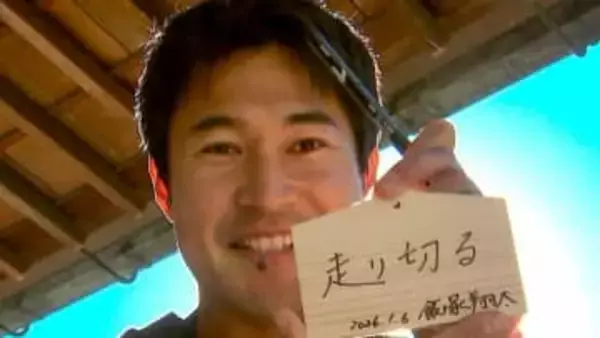 走り切る
2026.1.6 飯塚翔太